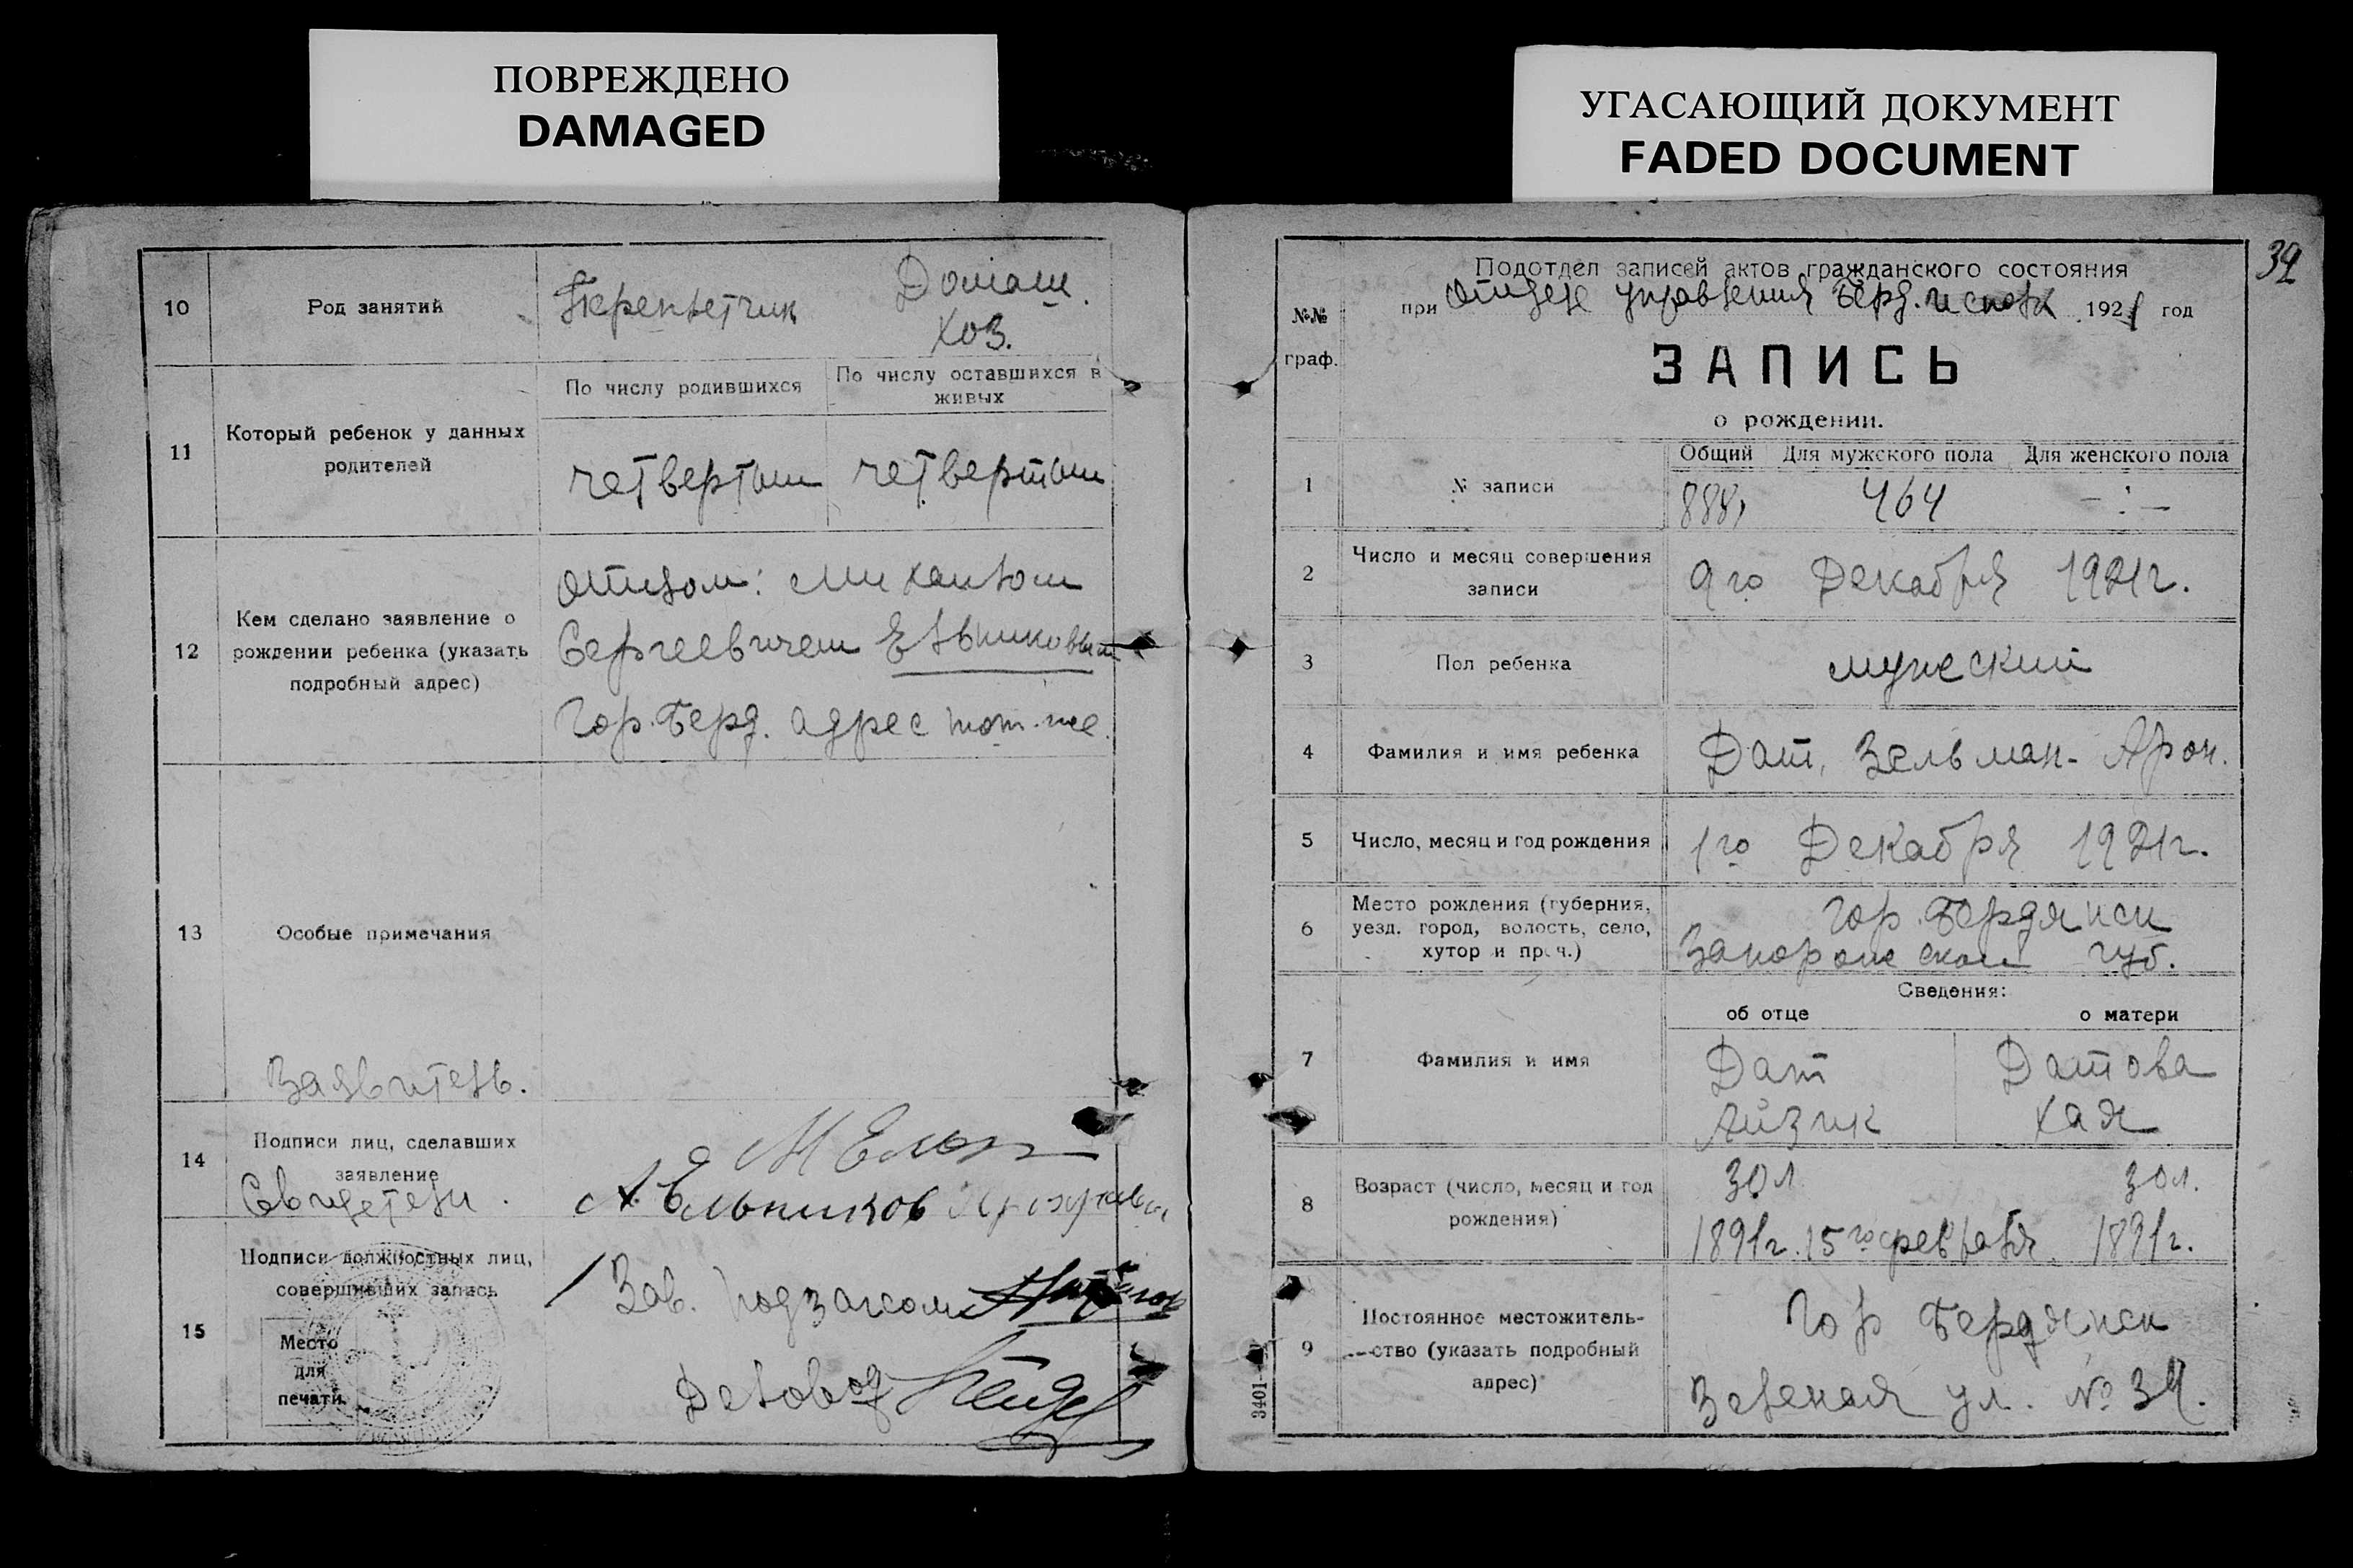 ПОВРЕЖДЕНО
DAMAGED
УГАСАЮЩИЙ ДОКУМЕНТ
FADED DOCUMENT
10
Род занятий
Переплетчик
Домаш.
хоз.
11
Который ребенок у данных
родителей
По числу родившихся
По числу оставшихся в
живых
четвертый
четвертый
12
Кем сделано заявление о
рождении ребенка (указать
подробный адрес)
Отцом: Михаилом
Сергеевичем Ельниковым
Гор. Берд. адрес тот-же.
13
Особые примечания
Заявитель.
14
Подписи лиц, сделавших
заявление
Свидетели.
А. Ельников
15
Подписи должностных лиц,
совершивших запись
Место
для
печати
Зав. подзагсом
Деловод
39
№№
граф.
Подотдел записей актов гражданского состояния
при Отделе Управления Берд. исполк 1921 год
ЗАПИСЬ
о рождении.
1
№ записи
Общий
Для мужского пола
Для женского пола
888,
464
- : -
2
Число и месяц совершения
записи
9го Декабря 1921г.
3
Пол ребенка
мужеский
4
Фамилия и имя ребенка
Дат, Зельман-Арон.
5
Число, месяц и год рождения
1го Декабря 1921г.
6
Место рождения (губерния,
уезд. город, волость, село,
хутор и проч.)
Гор. Бердянск
Запорожской губ.
Сведения:
об отце
о матери
7
Фамилия и имя
Дат
Айзик
Датова
Хая
8
Возраст (число, месяц и год
рождения)
30л
1891г. 15го февраля.
30л.
1891г.
9
Постоянное местожитель-
ство (указать подробный
адрес)
Гор Бердянск
Зеленая ул. № 34.
3401-